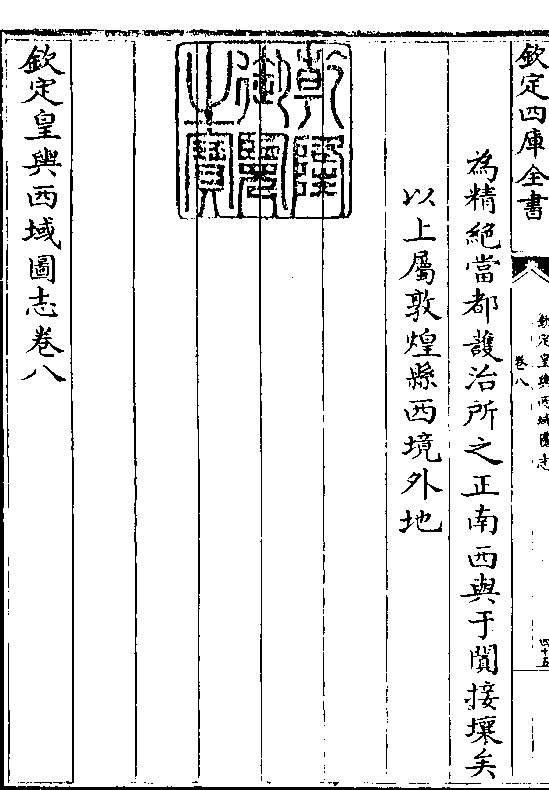 欽定四庫全書
欽定皇輿西域圖志
卷八
四十五
為精絶當都護治所之正南西與于闐接壤矣
以上屬敦煌縣西境外地
乾隆御覽之寶
欽定皇輿西域圖志卷八